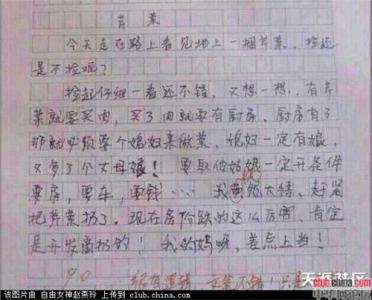 芹菜
今天走在路上看见地上一捆芹菜、捡还
是不捡呢?
捡起仔细一看还不错，又想一想，有芹
菜就要买肉，买了肉就要有厨房、厨房有了
那就必须要个媳妇来做菜、媳妇一定有娘，
又多了个丈母娘！要取他姑娘一定开条件
要房，要车，要钱……我恍然大悟、赶紧
把芹菜扔了。现在房价跌的这么厉害，肯定
是开发商扔的！我的妈呀，差点上当！
90
天涯社区
club.china.com
该图片由 自由女神赵燕玲 上传到 club.china.com